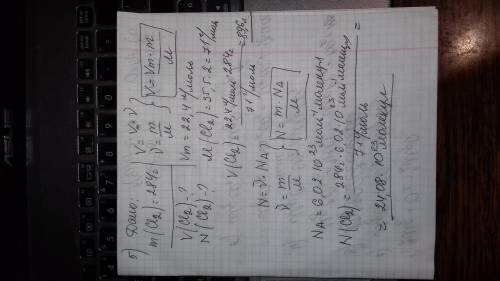 5) Дано:
m(Cl₂)=284г
V(Cl₂)-?
N(Cl₂)-?
V=Vm·ν
ν=m/M
V=Vm·m/M
Vm=22,4 л/моль
M(Cl₂)=35,5·2=71 г/моль
V(Cl₂)=22,4 л/моль·284г/71 г/моль=89,6л
N=ν·NA
ν=m/M
N=m·NA/M
NA=6,02·10²³ молекул
N(Cl₂)=284г·6,02·10²³ молекул/71 г/моль=
=24,08·10²³ молекул